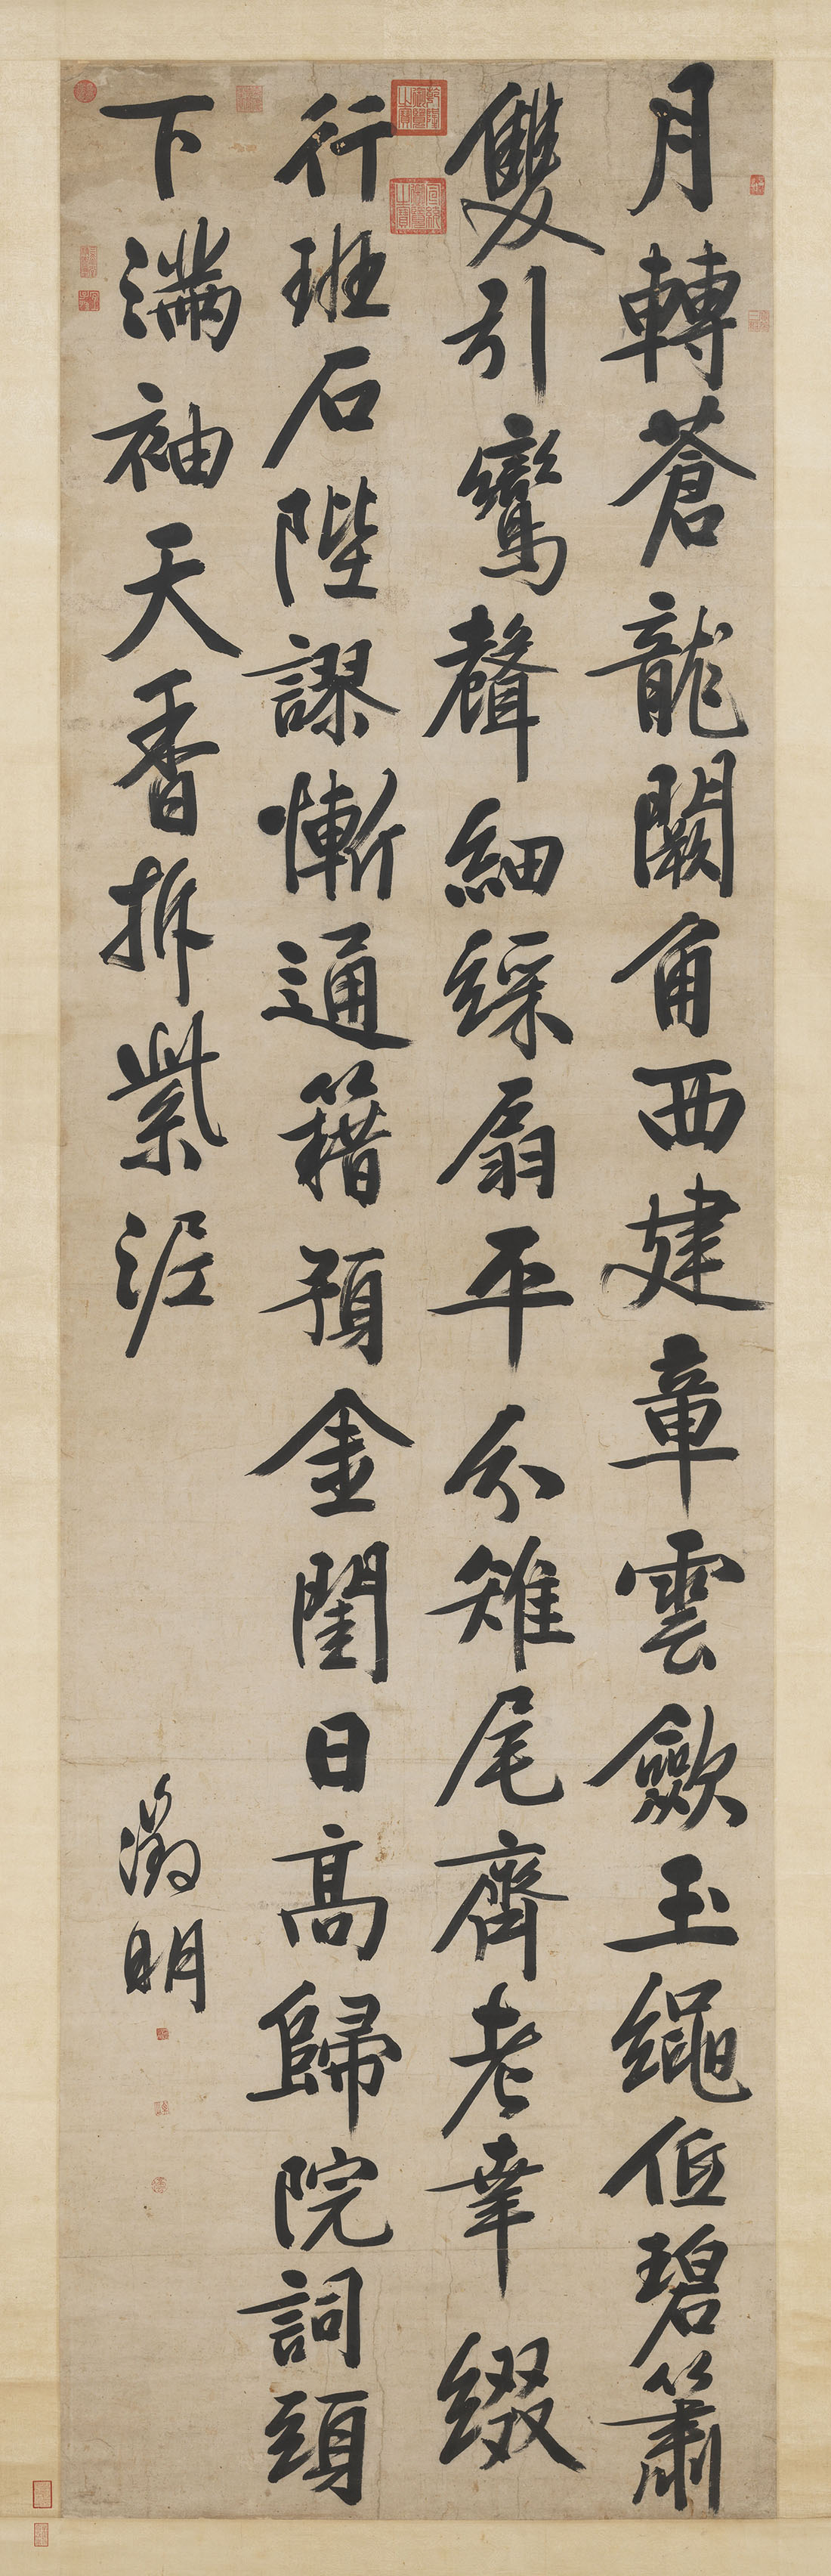 月轉蒼龍闕角西建章雲斂玉繩低碧簫
雙引鸞聲細綵扇平分雉尾齊老幸綴
行班石陛謬慚通籍預金閨日高歸院詞頭
下滿袖天香拆紫泥
徵明